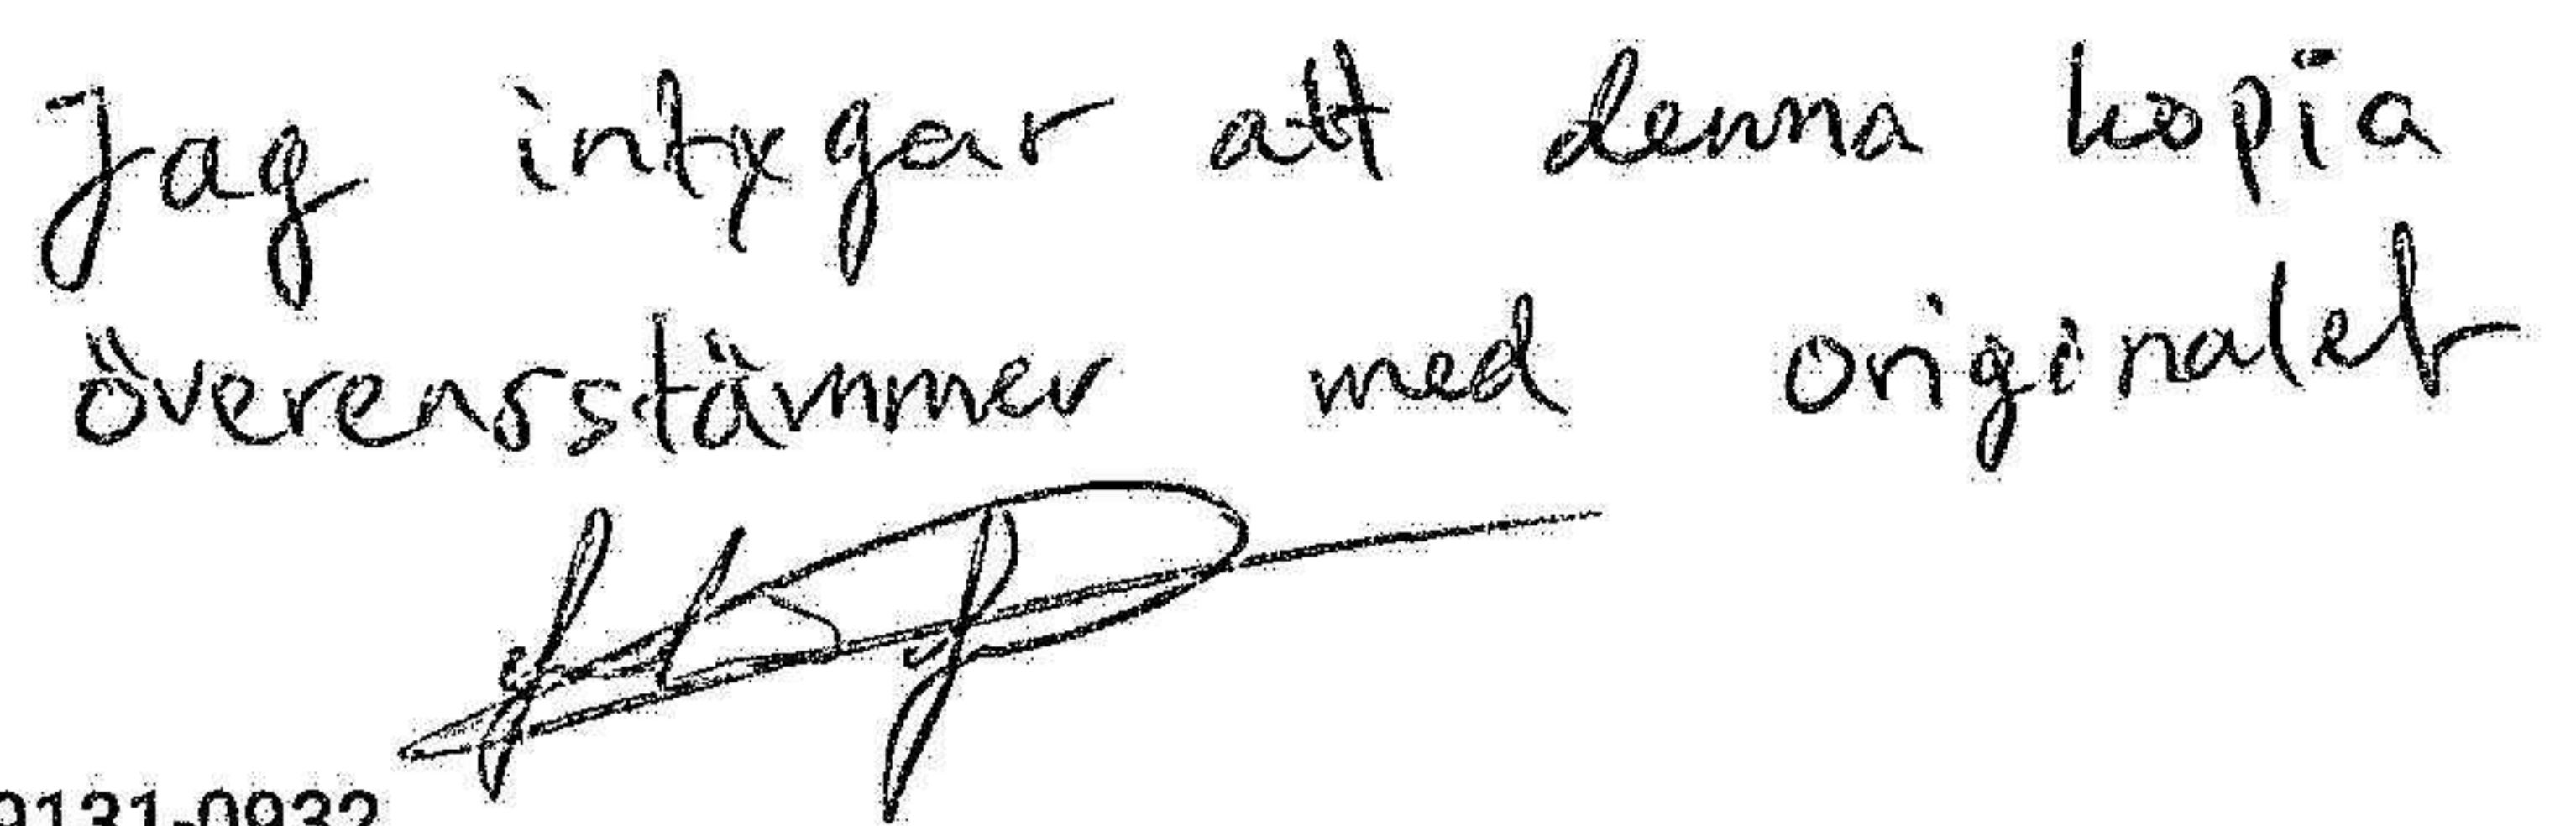 Jag intygar att denna kopia
överensstämmer med originalet
9131-0932